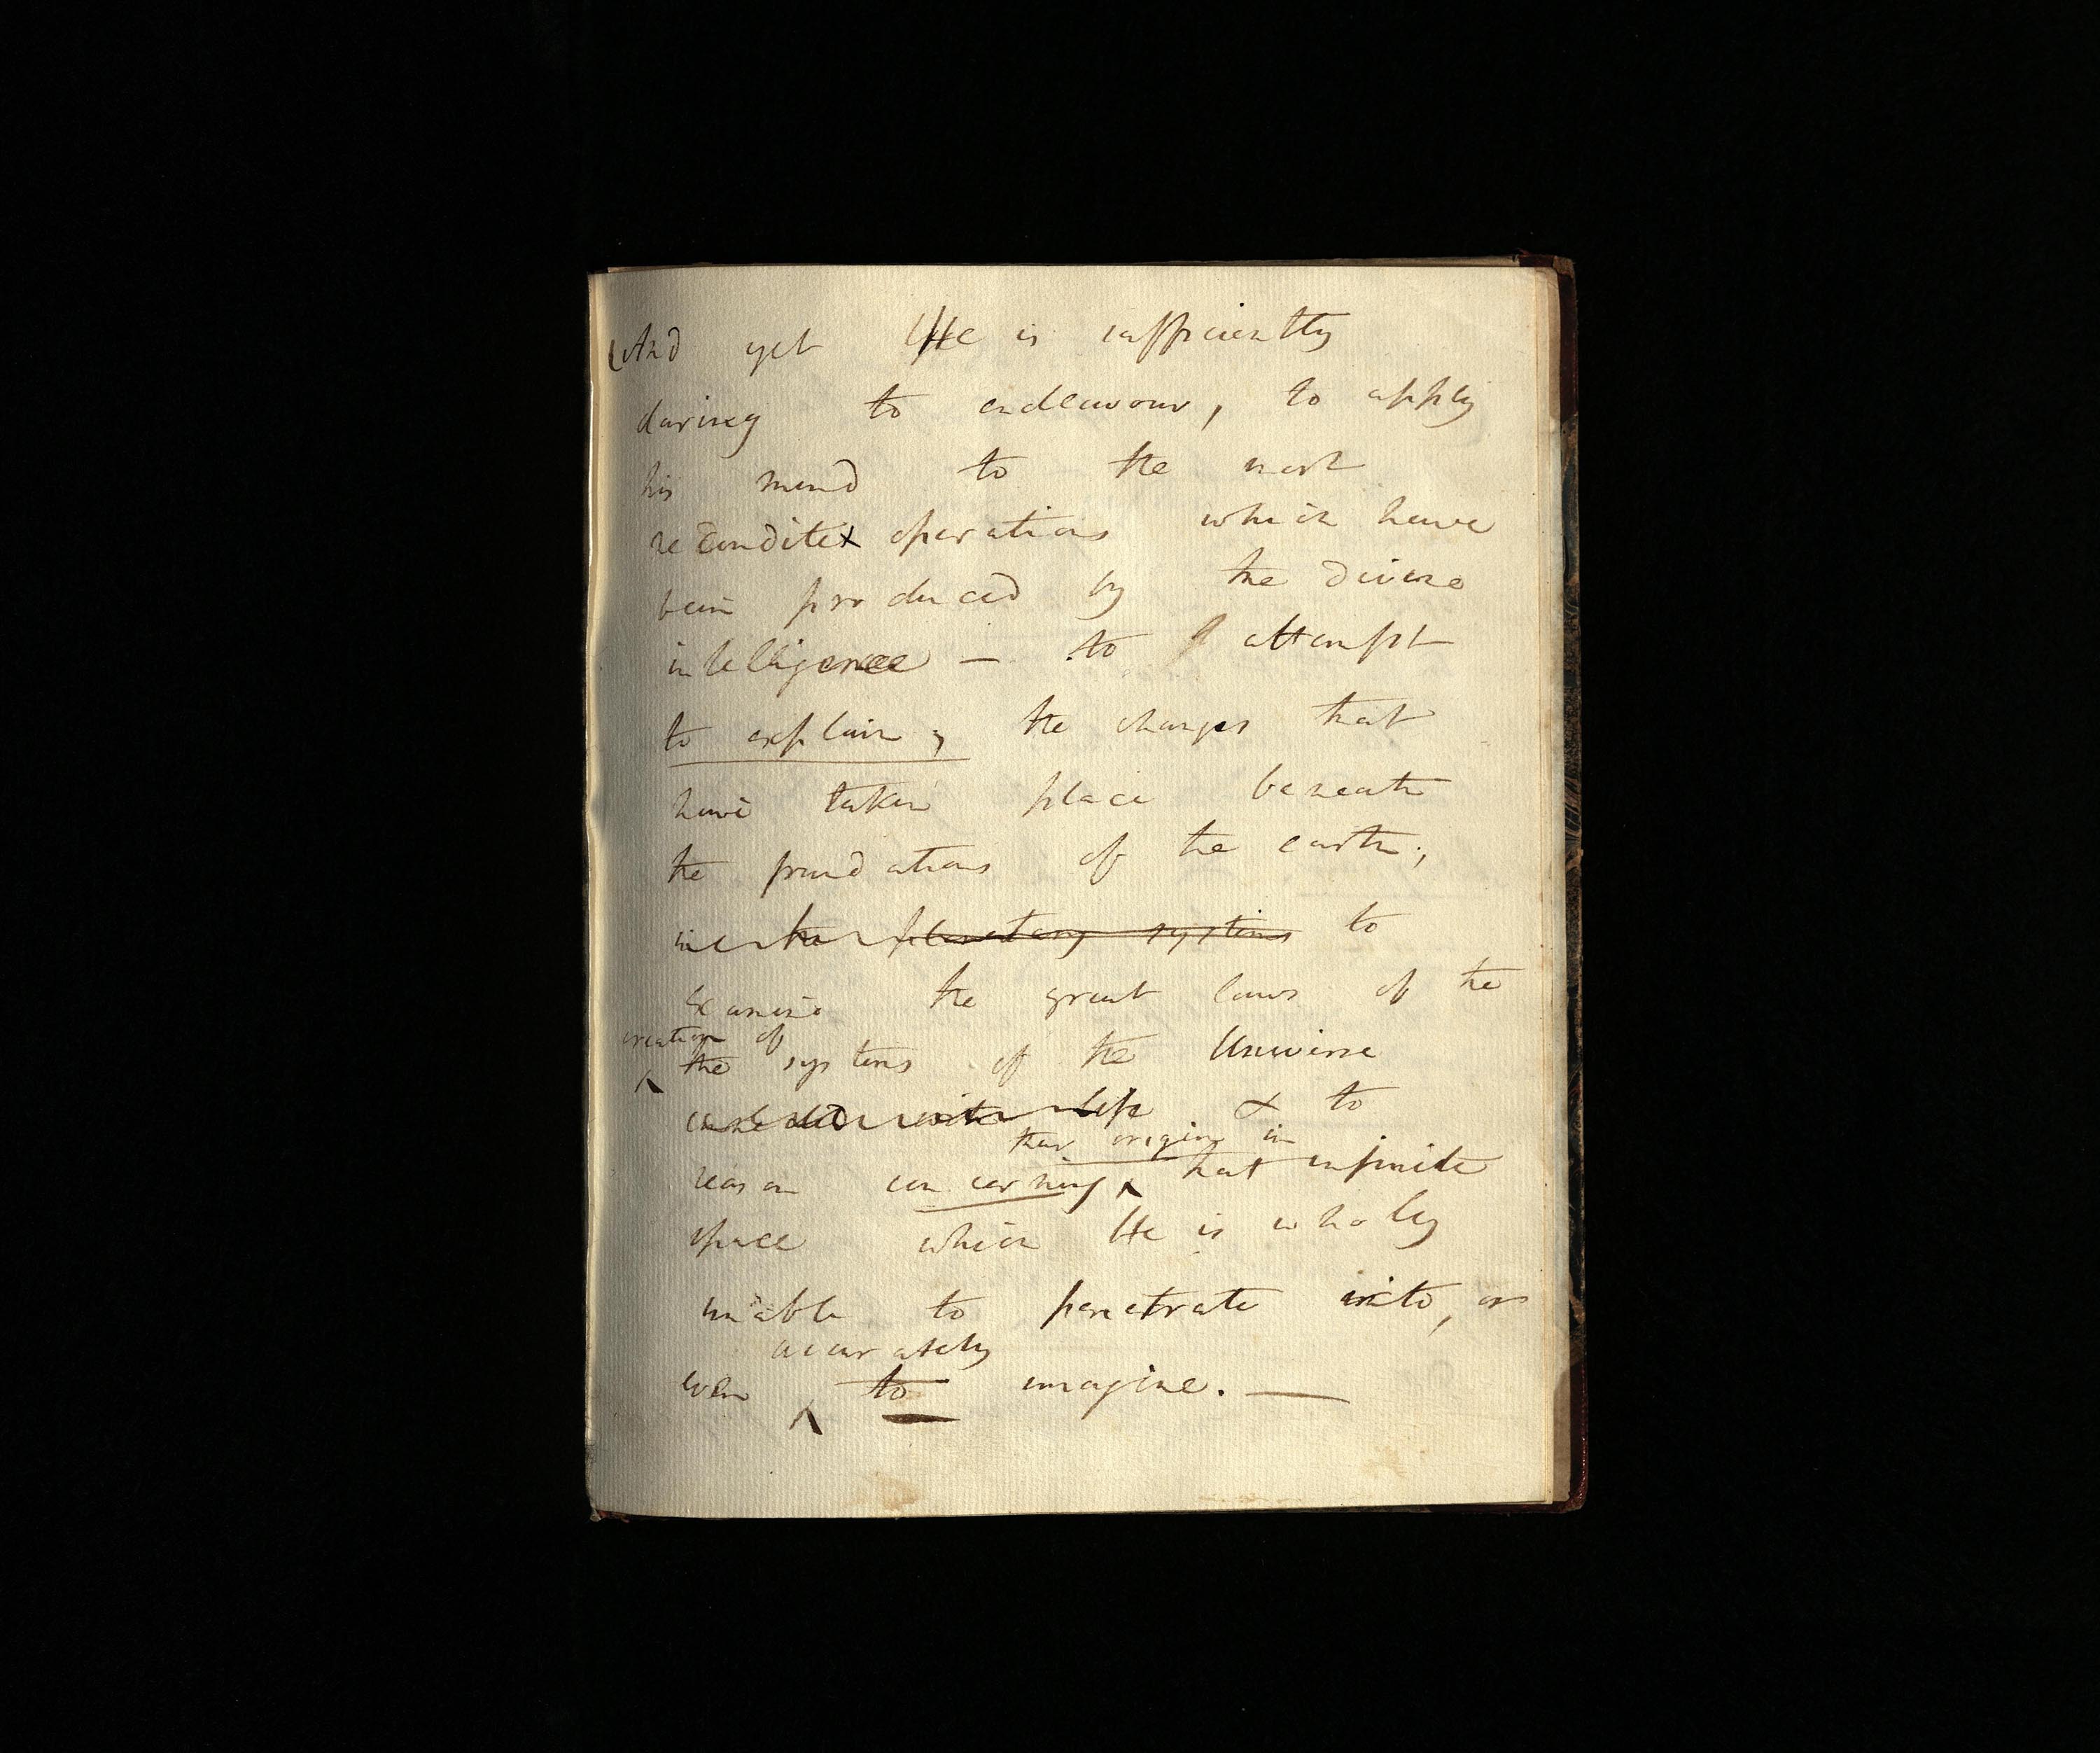 (And yet He is sufficiently
daring to endeavour, to apply
his mind to the most
recondite operations which have
been produced by the divine
intelligence — to attempt
to explain, the changes that
have taken place beneath
the foundations of the earth;
in the planetary systems to
examine the great laws of the
creation of
the systems of the Universe
with life & to
their origin in
reason concerning that infinite
space which He is wholy
unable to penetrate into, or
accurately
even to imagine. —